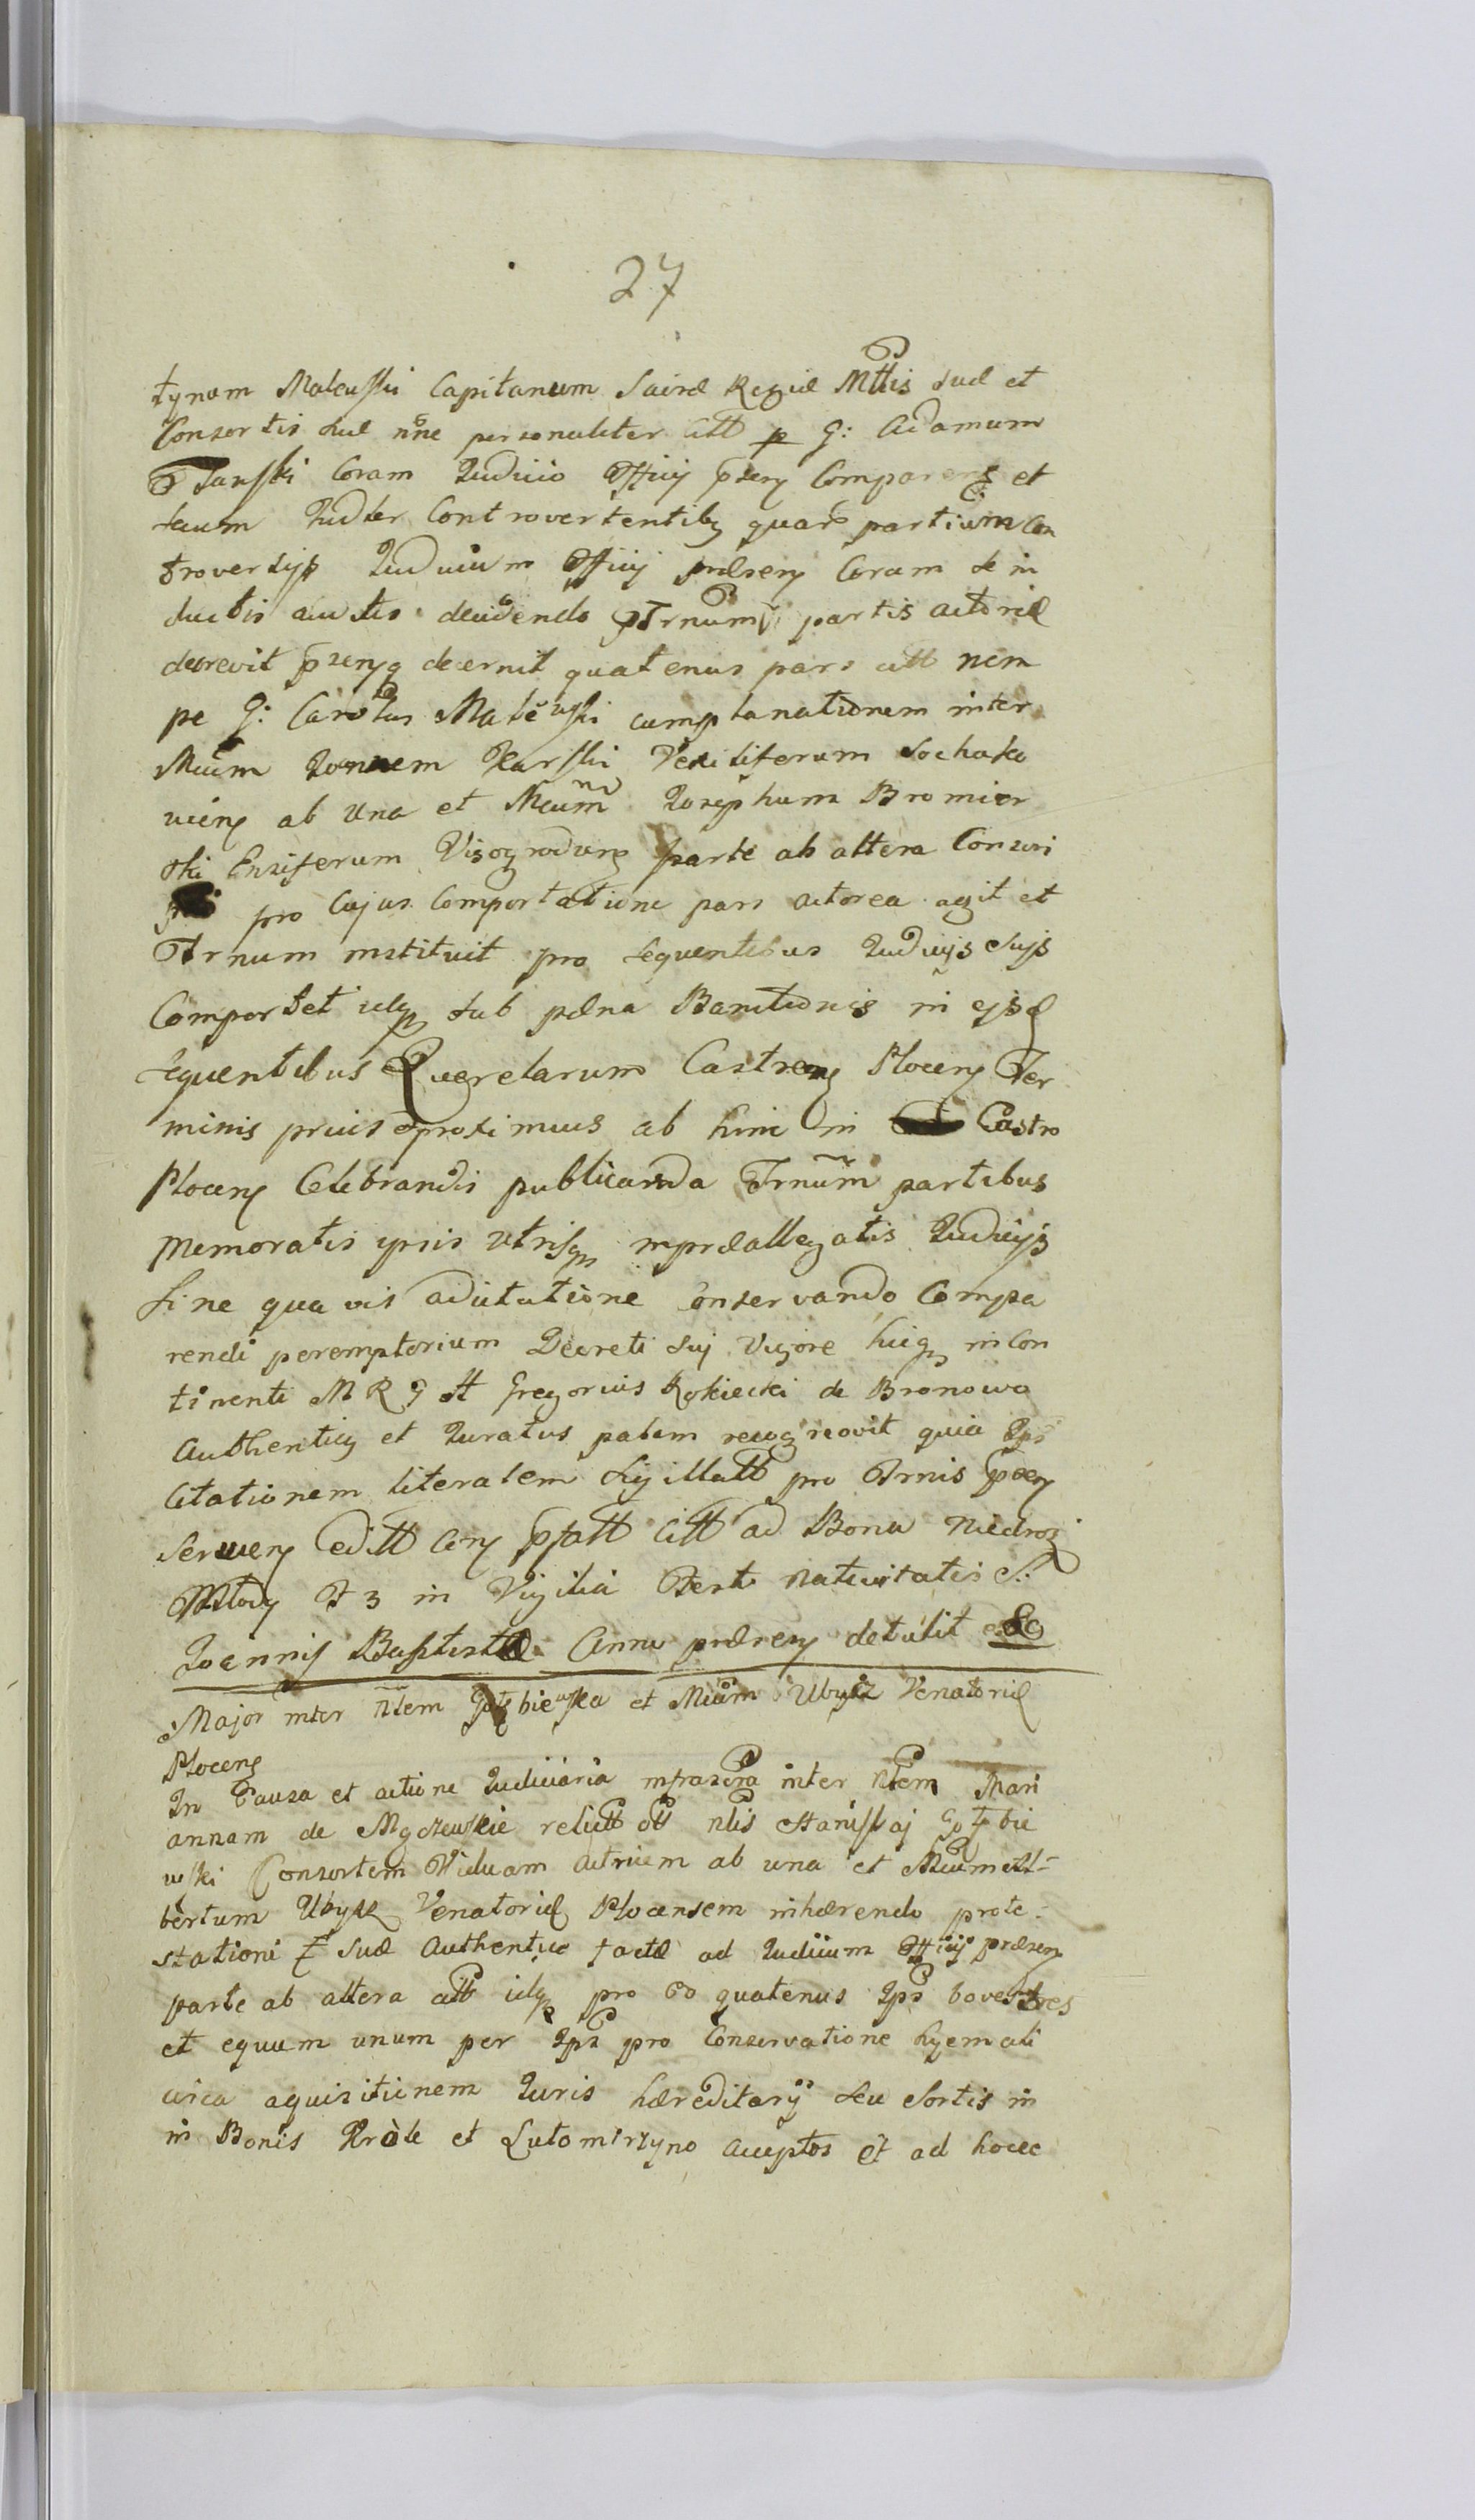 27
tynum Maleuski Capitanum Sacræ Regiæ Mttis suæ et
Consortis suæ nõne personaliter citt p G: Adamum
Turski Coram Judicio Officij pseng Comparens et
secum Judter Controvertentibg quar partium Con
troversijs Judicium Officij præseng Coram se in
ductis auditis decidendo Trnum partis actoreæ
decrevit psengq decernit quatenus pars citt nem
pe G: Carolus Maleuski complanationem inter
Mcum Joannem Karski Vexiliferum Sochako
vieng ab una et Mcum Josephum Bromier
ski Ensiferum Visogradieng parte ab altera Conscri
pro Cujus Comportatione pars actorea agit et
Trnum instituit pro sequentibus Judicijs Sujs
Comportet idqp sub pæna Banitionis in ejsd
sequentibus Querelarum Castreng Ploceng Ter
minis priuis proximius ab hinc in Castro
Ploceng Celebrandis publicanda Trnum partibus
memoratis ipsis utrisqp in præallegatis Judicijs
sine quavis adcitatione Conservando Compa
rendi peremptorium Decreti sui Vigore hicqp in Con
tinenti M R G tt Gregorius Rokiecki de Bronowo
Authenticg et Juratus palam recognovit quia Ips
Citationem literalem sigillatt pro Trnis pseng
servieng editt Cong psatt Citt ad Bona Niedroz
Mlody F 3 in Vigilia Festi Nativitatis S.
Joannis Baptistæ Anno præseng detulit &c
Major inter Ntem Gołębiewska et Mcum Ubysz Venatorid
Ploceng
In Causa et actione Judiciaria infrascra inter Ntem Mari
annam de relictt ott Nlis Stanislaj Gołębie
wski Consortem Viduam actricem ab una et Mcum Al=
bertum Ubysz Venatorid Plocensem inhærendo prote-
stationi suæ Authentice factæ ad Judicium Officij præseng
parte ab altera citt idqp pro eo quatenus Ips boves tres
et equum unum per Ips pro Conservatione hyemali
circa aquisitionem Juris hæreditarij seu sortis in
in Bonis Króle et Lutomirzyno acceptos et ad hocce